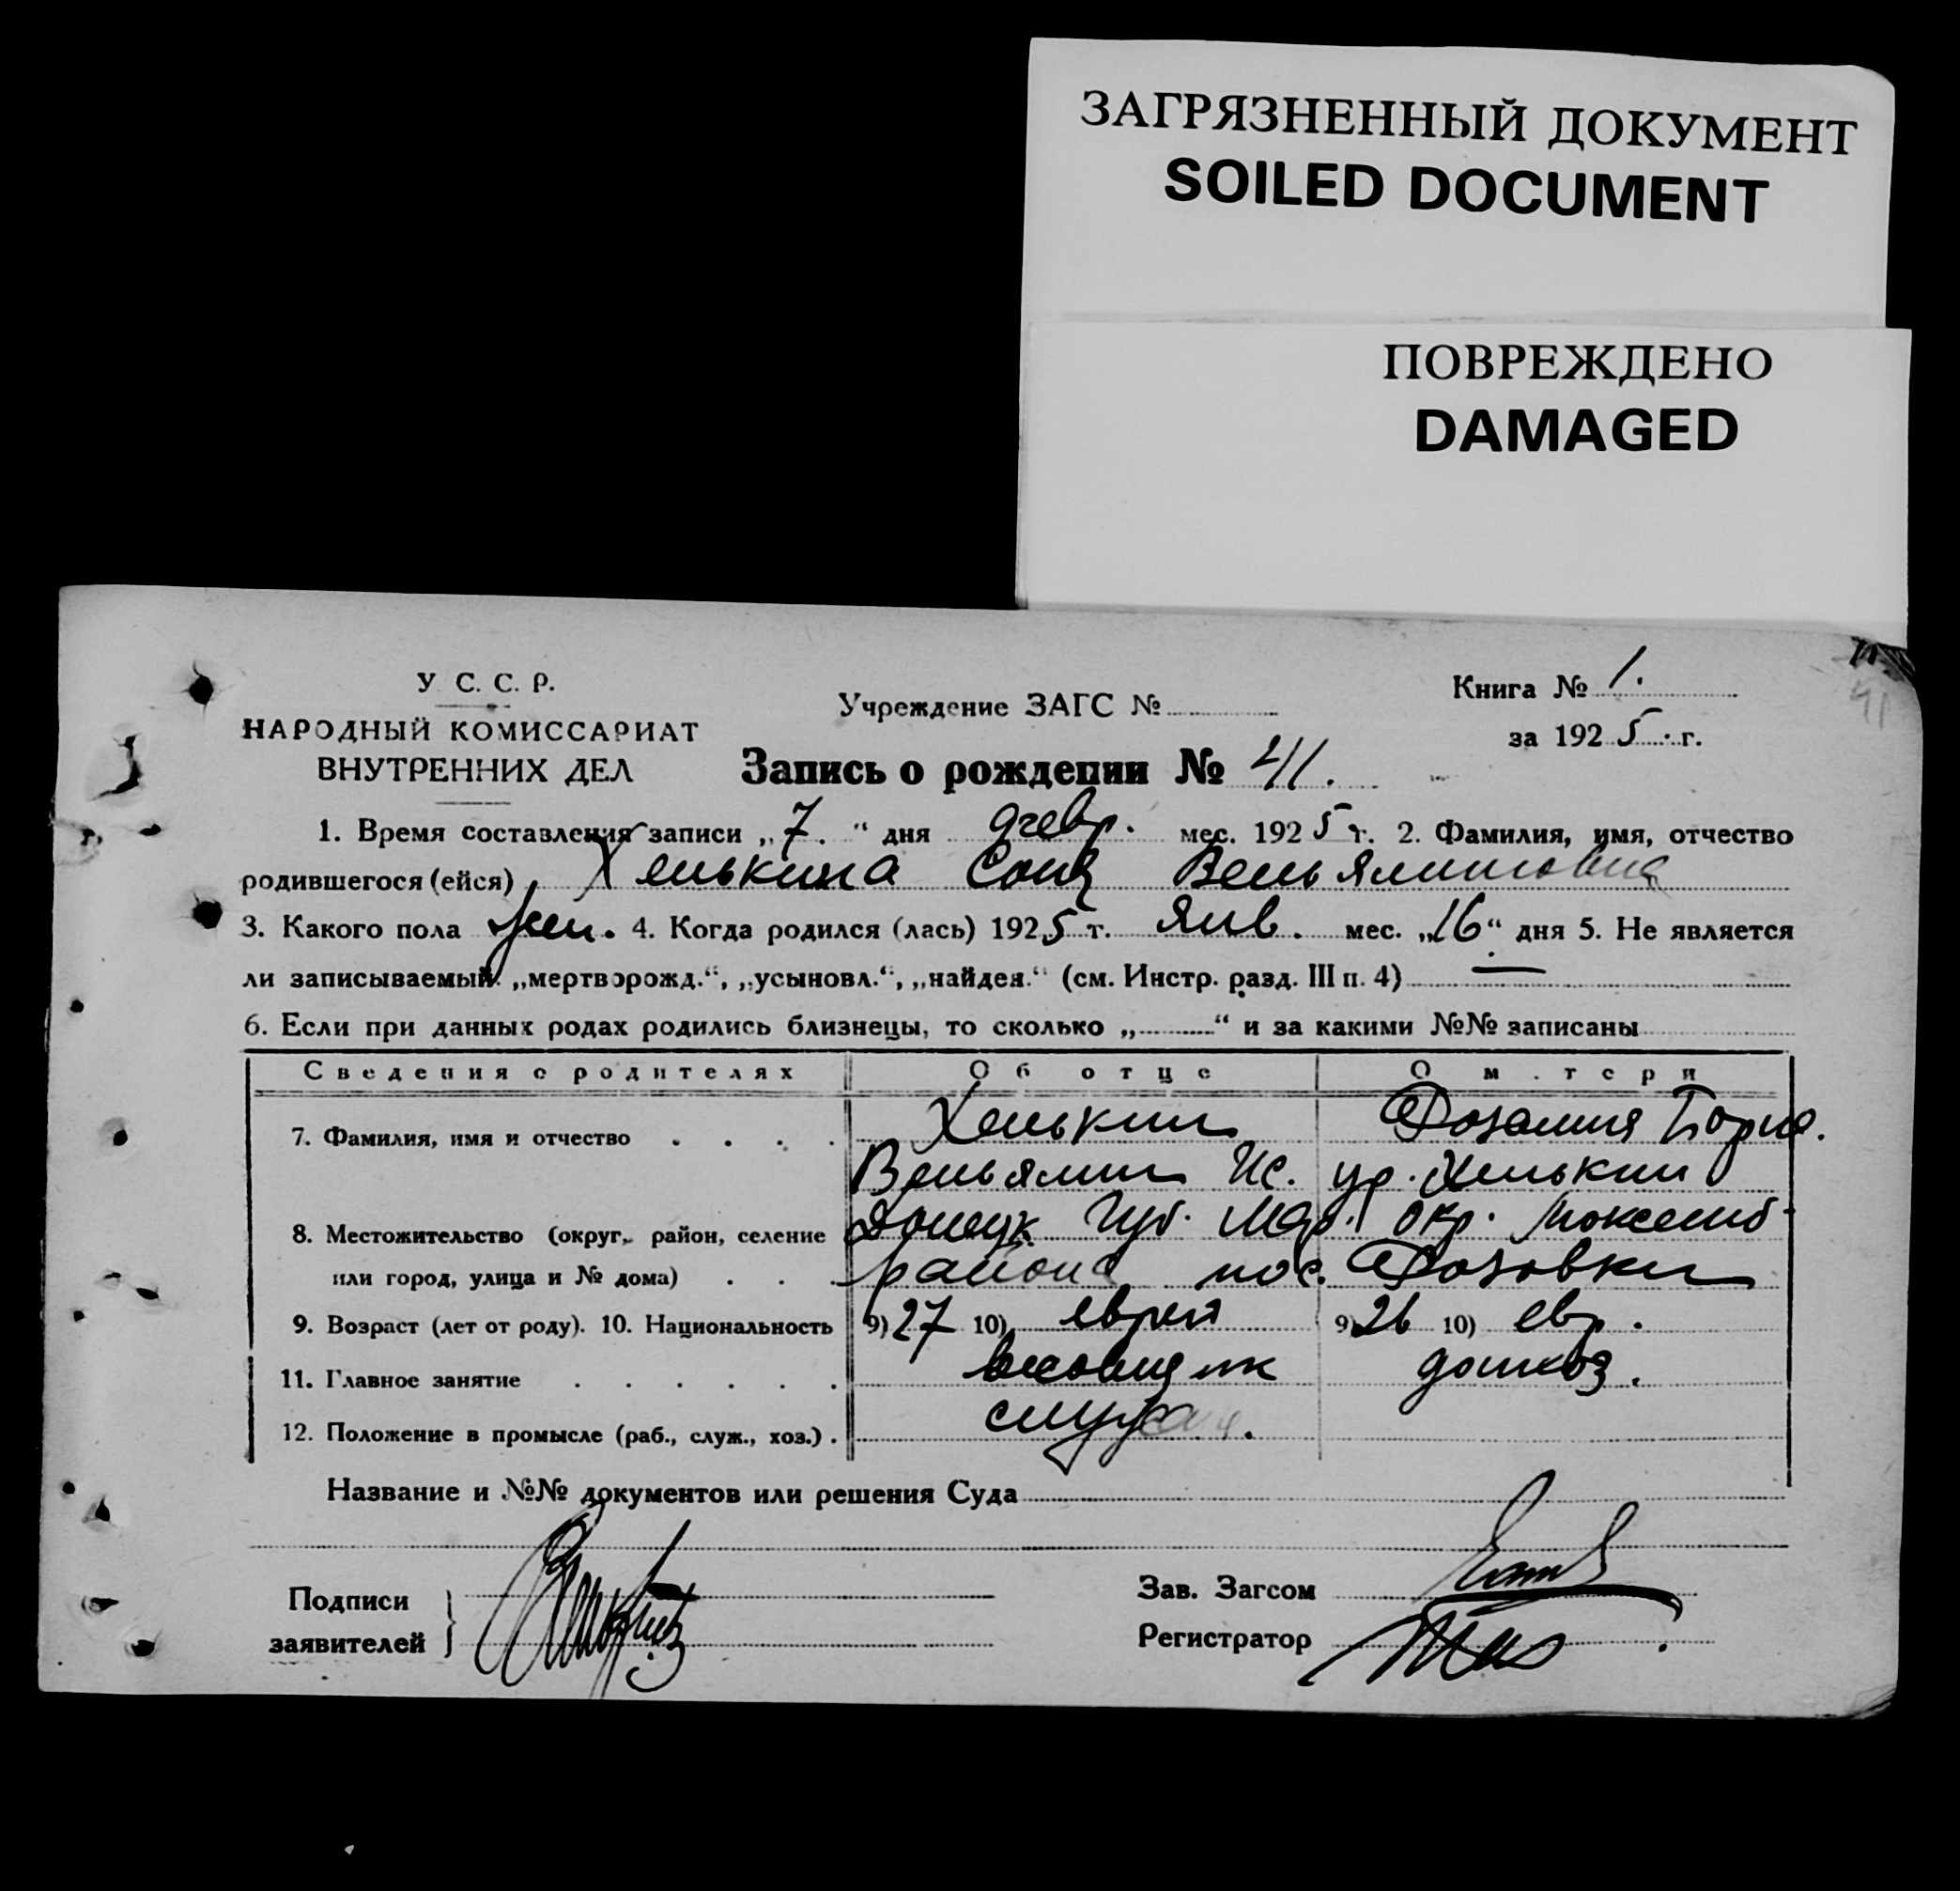 ЗАГРЯЗНЕННЫЙ ДОКУМЕНТ
SOILED DOCUMENT
ПОВРЕЖДЕНО
DAMAGED
У. С. С. Р.
НАРОДНЫЙ КОМИССАРИАТ
ВНУТРЕННИХ ДЕЛ
Учреждение ЗАГС №
Книга № 1.
за 1925 г.
41
Запись о рождении № 41.
1. Время составления записи „7.“ дня февр. мес. 1925 г. 2. Фамилия, имя, отчество
родившегося (ейся) Хенькина Соня Веньяминовна
3. Какого пола жен. 4. Когда родился (лась) 1925 г. янв. мес. „16“ дня 5. Не является
ли записываемый „мертворожд.“, „усыновл.“, „найден.“ (см. Инстр. разд. III п. 4) —
6. Если при данных родах родились близнецы, то сколько „ “ и за какими №№ записаны
Сведения о родителях Об отце О м.тери
7. Фамилия, имя и отчество Хенькин Розалия Борис.
Веньямин Ис. ур. Хенькин
8. Местожительство (округ, район, селение Донецк. Губ. Мар. Окр.
или город, улица и № дома) района пос. Розовки
9. Возраст (лет от роду). 10. Национальность 9) 27 10) еврей 9) 26 10) евр.
11. Главное занятие весовщик домхоз.
12. Положение в промысле (раб., служ., хоз.) служащ.
Название и №№ документов или решения Суда
Подписи
заявителей
Зав. Загсом
Регистратор